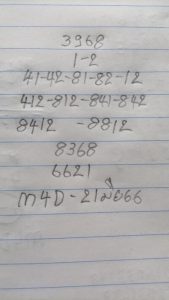 3968
1-2
41-42-81-82-12
412-812-841-842
8412 -8812
8368
6621
m4D-21มิย66